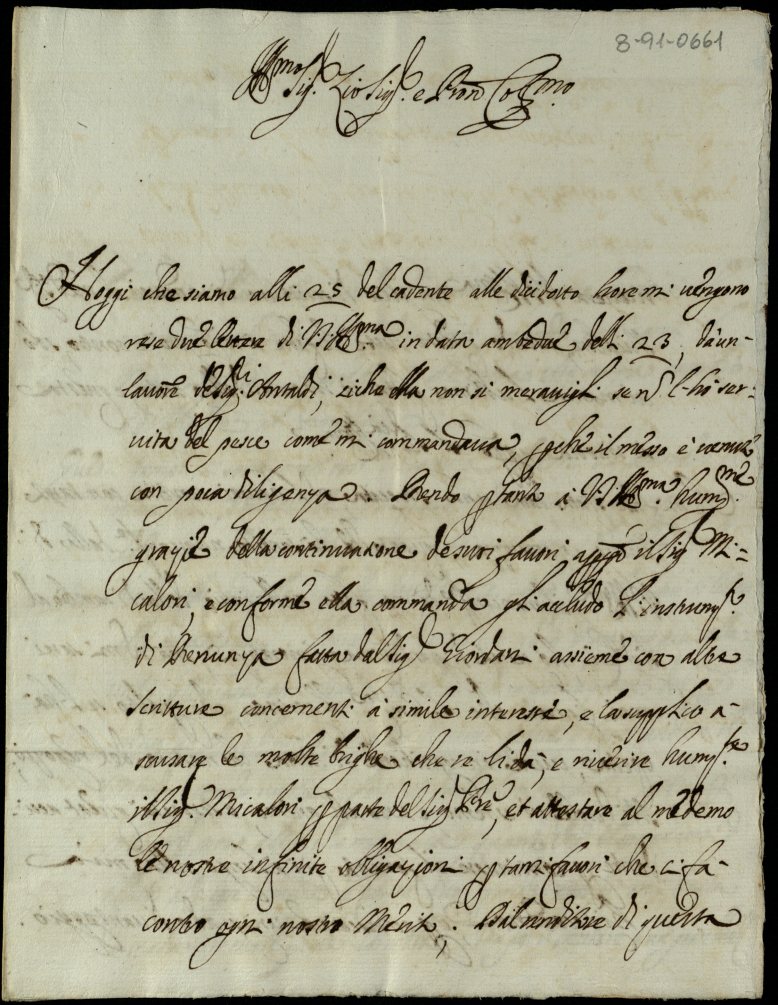 8-91-0661
Ill.mo Sig.r Zio Sig.r e Pron Col.mo
Hoggi che siamo alli 25 del cadente alle dicidotto hore mi vengono
rese due lettere di V.S. Ill.ma in data ambedue delli 23, da un
lavore de Sig.ri Antaldi, siche ella non si meravigli se n l'hò ser=
vita del pesce come mi commandava, pche il messo è venuto
con poca diligenza. Rendo ptanto à V.S. Ill.ma hum.me
grazie della continuazione de suoi favori appo il Sig.r Mi=
calori, e conforme ella commanda gli accludo l'instrum.to
di Renunza fatta dal Sig.r Giordani assieme con altre
scritture concernenti à simile interesse, e la supplico à
scusare le molte brighe che se li dà, e riverire hum.te
il Sig.r Micalori p parte del Sig.r Pre, et attestare al medemo
le nostre infinite obligazioni p tanti favori che ci fà
contro ogni nostro Merito. Dal venditore di questa